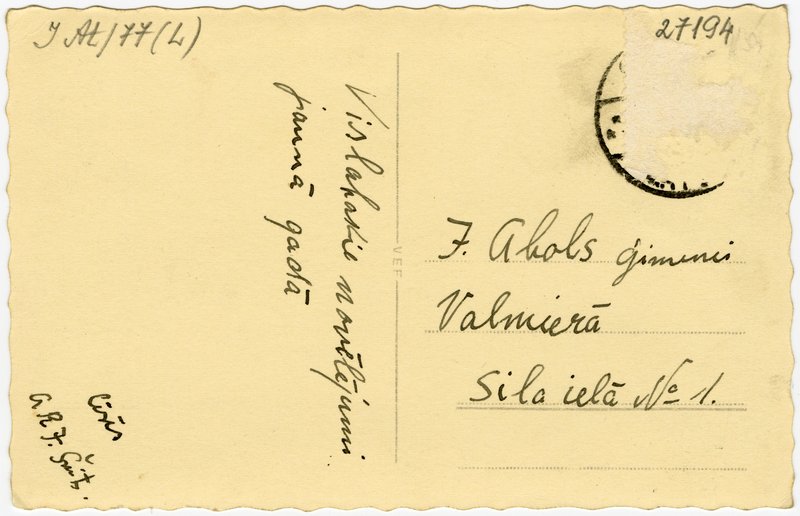 J At/77(L)
27194
Vislabākie novēlējumi
jaunā gadā
J. Abols ģimenei
Valmierā
Sila ielā № 1.
VEF